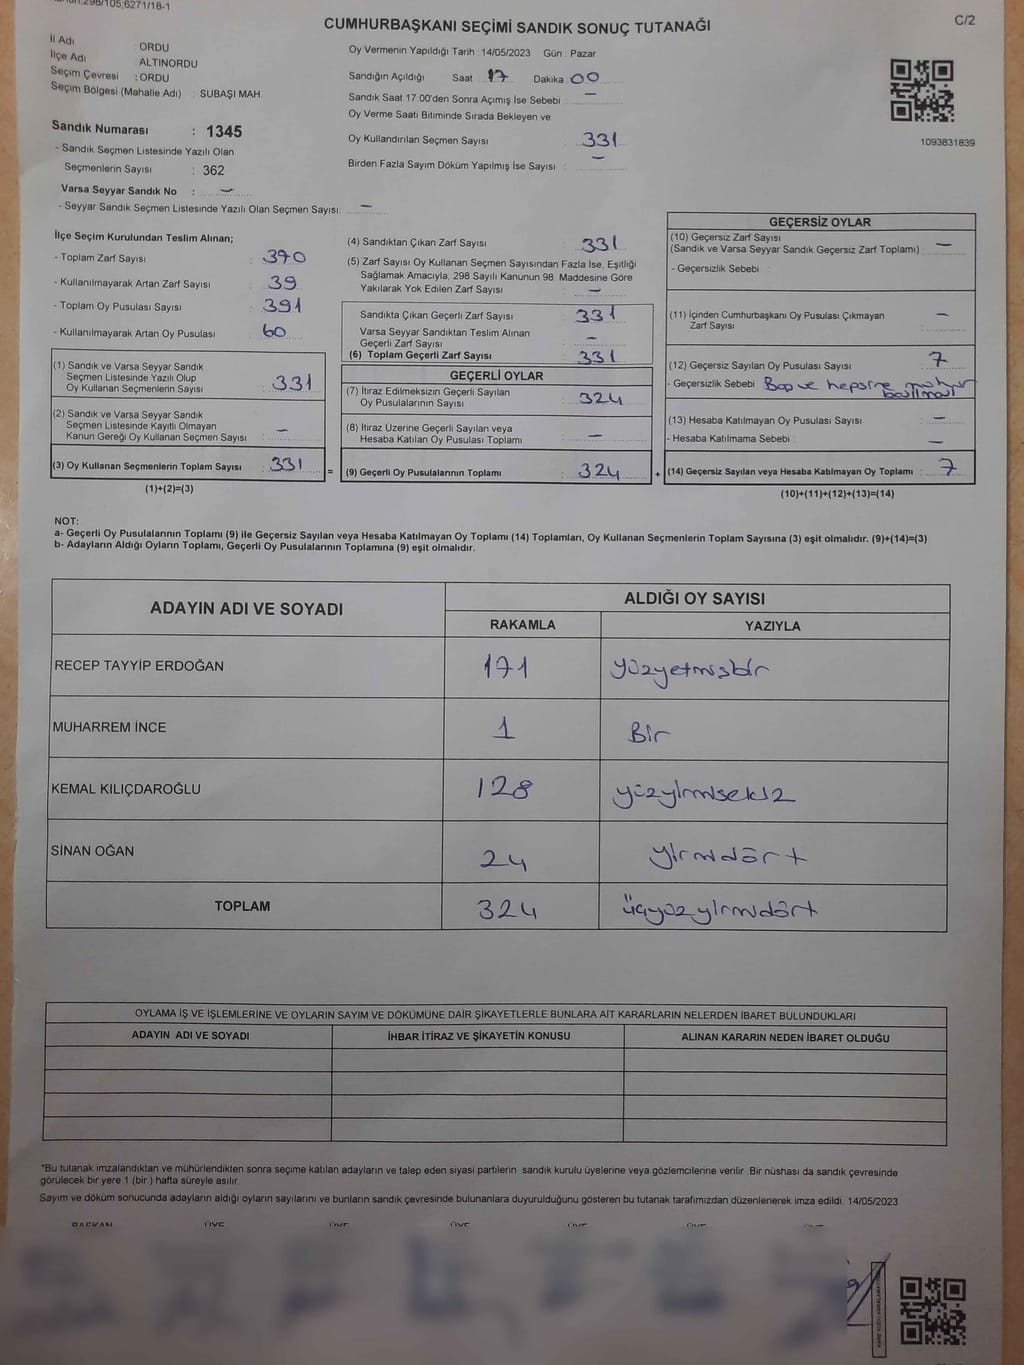 298/105,6271/18-1
C/2
CUMHURBAŞKANI SEÇİMİ SANDIK SONUÇ TUTANAĞI
İl Adı : ORDU
İlçe Adı : ALTINORDU
Seçim Çevresi : ORDU
Seçim Bölgesi (Mahalle Adı) : SUBAŞI MAH.
Sandık Numarası : 1345
- Sandık Seçmen Listesinde Yazılı Olan
Seçmenlerin Sayısı : 362
Varsa Seyyar Sandık No : -
- Seyyar Sandık Seçmen Listesinde Yazılı Olan Seçmen Sayısı: -
Oy Vermenin Yapıldığı Tarih : 14/05/2023 Gün : Pazar
Sandığın Açıldığı Saat 17 Dakika 00
Sandık Saat 17:00'den Sonra Açımış İse Sebebi : -
Oy Verme Saati Bitiminde Sırada Bekleyen ve
Oy Kullandırılan Seçmen Sayısı : 331
Birden Fazla Sayım Döküm Yapılmış İse Sayısı : -
1093831839
İlçe Seçim Kurulundan Teslim Alınan;
- Toplam Zarf Sayısı : 370
- Kullanılmayarak Artan Zarf Sayısı : 39
- Toplam Oy Pusulası Sayısı : 391
- Kullanılmayarak Artan Oy Pusulası : 60
(1) Sandık ve Varsa Seyyar Sandık
Seçmen Listesinde Yazılı Olup
Oy Kullanan Seçmenlerin Sayısı : 331
(2) Sandık ve Varsa Seyyar Sandık
Seçmen Listesinde Kayıtlı Olmayan
Kanun Gereği Oy Kullanan Seçmen Sayısı : -
(3) Oy Kullanan Seçmenlerin Toplam Sayısı : 331
(1)+(2)=(3)
=
(4) Sandıktan Çıkan Zarf Sayısı : 331
(5) Zarf Sayısı Oy Kullanan Seçmen Sayısından Fazla İse, Eşitliği
Sağlamak Amacıyla, 298 Sayılı Kanunun 98. Maddesine Göre
Yakılarak Yok Edilen Zarf Sayısı : -
Sandıkta Çıkan Geçerli Zarf Sayısı : 331
Varsa Seyyar Sandıktan Teslim Alınan
Geçerli Zarf Sayısı : -
(6) Toplam Geçerli Zarf Sayısı : 331
GEÇERLİ OYLAR
(7) İtiraz Edilmeksizin Geçerli Sayılan
Oy Pusulalarının Sayısı : 324
(8) İtiraz Üzerine Geçerli Sayılan veya
Hesaba Katılan Oy Pusulası Toplamı : -
(9) Geçerli Oy Pusulalarının Toplamı : 324
+
GEÇERSİZ OYLAR
(10) Geçersiz Zarf Sayısı
(Sandık ve Varsa Seyyar Sandık Geçersiz Zarf Toplamı) : -
- Geçersizlik Sebebi :
(11) İçinden Cumhurbaşkanı Oy Pusulası Çıkmayan
Zarf Sayısı : -
(12) Geçersiz Sayılan Oy Pusulası Sayısı : 7
- Geçersizlik Sebebi : Boş ve hepsine mühür
basılması
(13) Hesaba Katılmayan Oy Pusulası Sayısı : -
- Hesaba Katılmama Sebebi : -
(14) Geçersiz Sayılan veya Hesaba Katılmayan Oy Toplamı : 7
(10)+(11)+(12)+(13)=(14)
NOT:
a- Geçerli Oy Pusulalarının Toplamı (9) ile Geçersiz Sayılan veya Hesaba Katılmayan Oy Toplamı (14) Toplamları, Oy Kullanan Seçmenlerin Toplam Sayısına (3) eşit olmalıdır. (9)+(14)=(3)
b- Adayların Aldığı Oyların Toplamı, Geçerli Oy Pusulalarının Toplamına (9) eşit olmalıdır.
ADAYIN ADI VE SOYADI ALDIĞI OY SAYISI
RAKAMLA YAZIYLA
RECEP TAYYİP ERDOĞAN 171 yüzyetmişbir
MUHARREM İNCE 1 Bir
KEMAL KILIÇDAROĞLU 128 yüzyirmisekiz
SİNAN OĞAN 24 yirmidört
TOPLAM 324 üçyüzyirmidört
OYLAMA İŞ VE İŞLEMLERİNE VE OYLARIN SAYIM VE DÖKÜMÜNE DAİR ŞİKAYETLERLE BUNLARA AİT KARARLARIN NELERDEN İBARET BULUNDUKLARI
ADAYIN ADI VE SOYADI İHBAR İTİRAZ VE ŞİKAYETİN KONUSU ALINAN KARARIN NEDEN İBARET OLDUĞU
*Bu tutanak imzalandıktan ve mühürlendikten sonra seçime katılan adayların ve talep eden siyasi partilerin sandık kurulu üyelerine veya gözlemcilerine verilir. Bir nüshası da sandık çevresinde
görülecek bir yere 1 (bir ) hafta süreyle asılır.
Sayım ve döküm sonucunda adayların aldığı oyların sayılarını ve bunların sandık çevresinde bulunanlara duyurulduğunu gösteren bu tutanak tarafımızdan düzenlenerek imza edildi. 14/05/2023
BAŞKAN ÜYE ÜYE ÜYE ÜYE ÜYE ÜYE